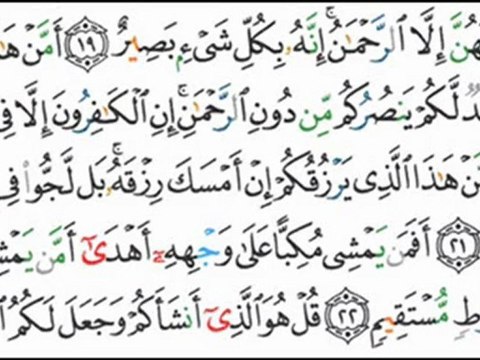 هُنَّ إِلَّا ٱلرَّحۡمَٰنُۚ إِنَّهُۥ بِكُلِّ شَيۡءِۭ بَصِيرٌ ١٩ أَمَّنۡ هَٰ
لَّكُمۡ يَنصُرُكُم مِّن دُونِ ٱلرَّحۡمَٰنِۚ إِنِ ٱلۡكَٰفِرُونَ إِلَّا فِي
هَٰذَا ٱلَّذِي يَرۡزُقُكُمۡ إِنۡ أَمۡسَكَ رِزۡقَهُۥۚ بَل لَّجُّواْ فِي
٢١ أَفَمَن يَمۡشِي مُكِبًّا عَلَىٰ وَجۡهِهِۦٓ أَهۡدَىٰٓ أَمَّن يَمۡشِ
طٖ مُّسۡتَقِيمٖ ٢٢ قُلۡ هُوَ ٱلَّذِيٓ أَنشَأَكُمۡ وَجَعَلَ لَكُمُ ٱ